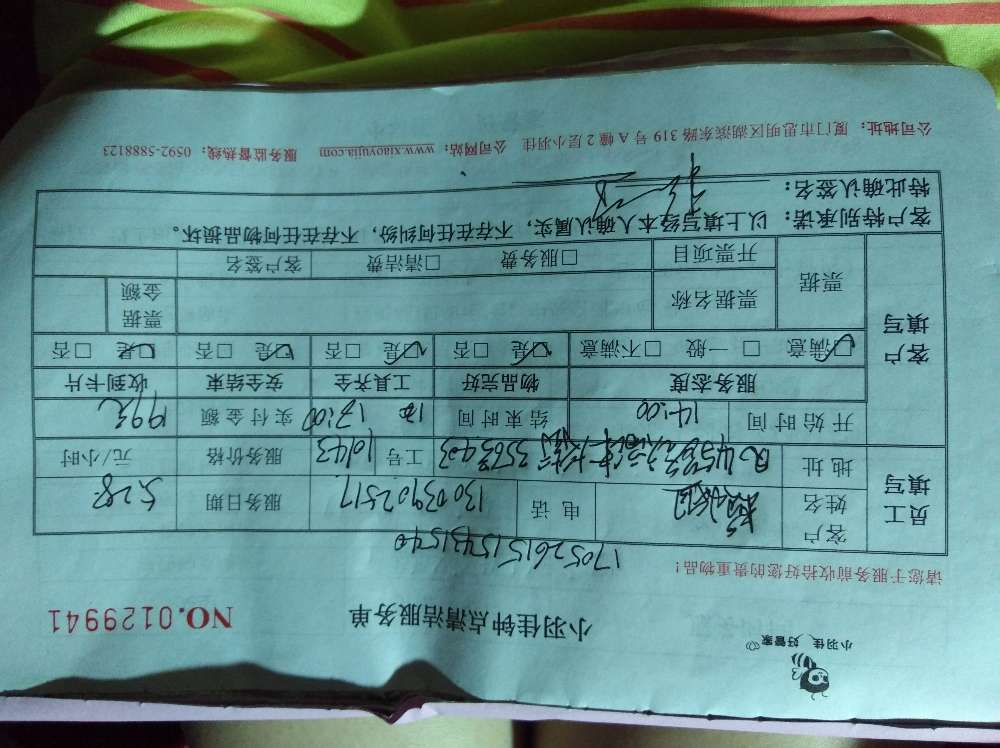 小羽佳 好管家
小羽佳钟点清洁服务单 NO.0129941
请您于服务前收拾好您的贵重物品！ 1705261515431540
员工填写 客户姓名 电话 13003902517 服务日期 5.28
地址 工号 1043 服务价格 元/小时
开始时间 14:00 结束时间 17:00 实付金额 199元
客户填写 服务态度 物品完好 工具齐全 安全结束 收到卡片
☑满意 □一般 □不满意 ☑是 □否 ☑是 □否 ☑是 □否 ☑是 □否
票据 票据名称 票据金额
开票项目 □服务费 □清洁费 客户签名
客户特别承诺：以上填写经本人确认属实，不存在任何纠纷，不存在任何物品损坏。
特此确认签名：
公司地址：厦门市思明区湖滨东路319号A幢2层小羽佳 公司网站：www.xiaoyujia.com 服务监督热线：0592-5888123